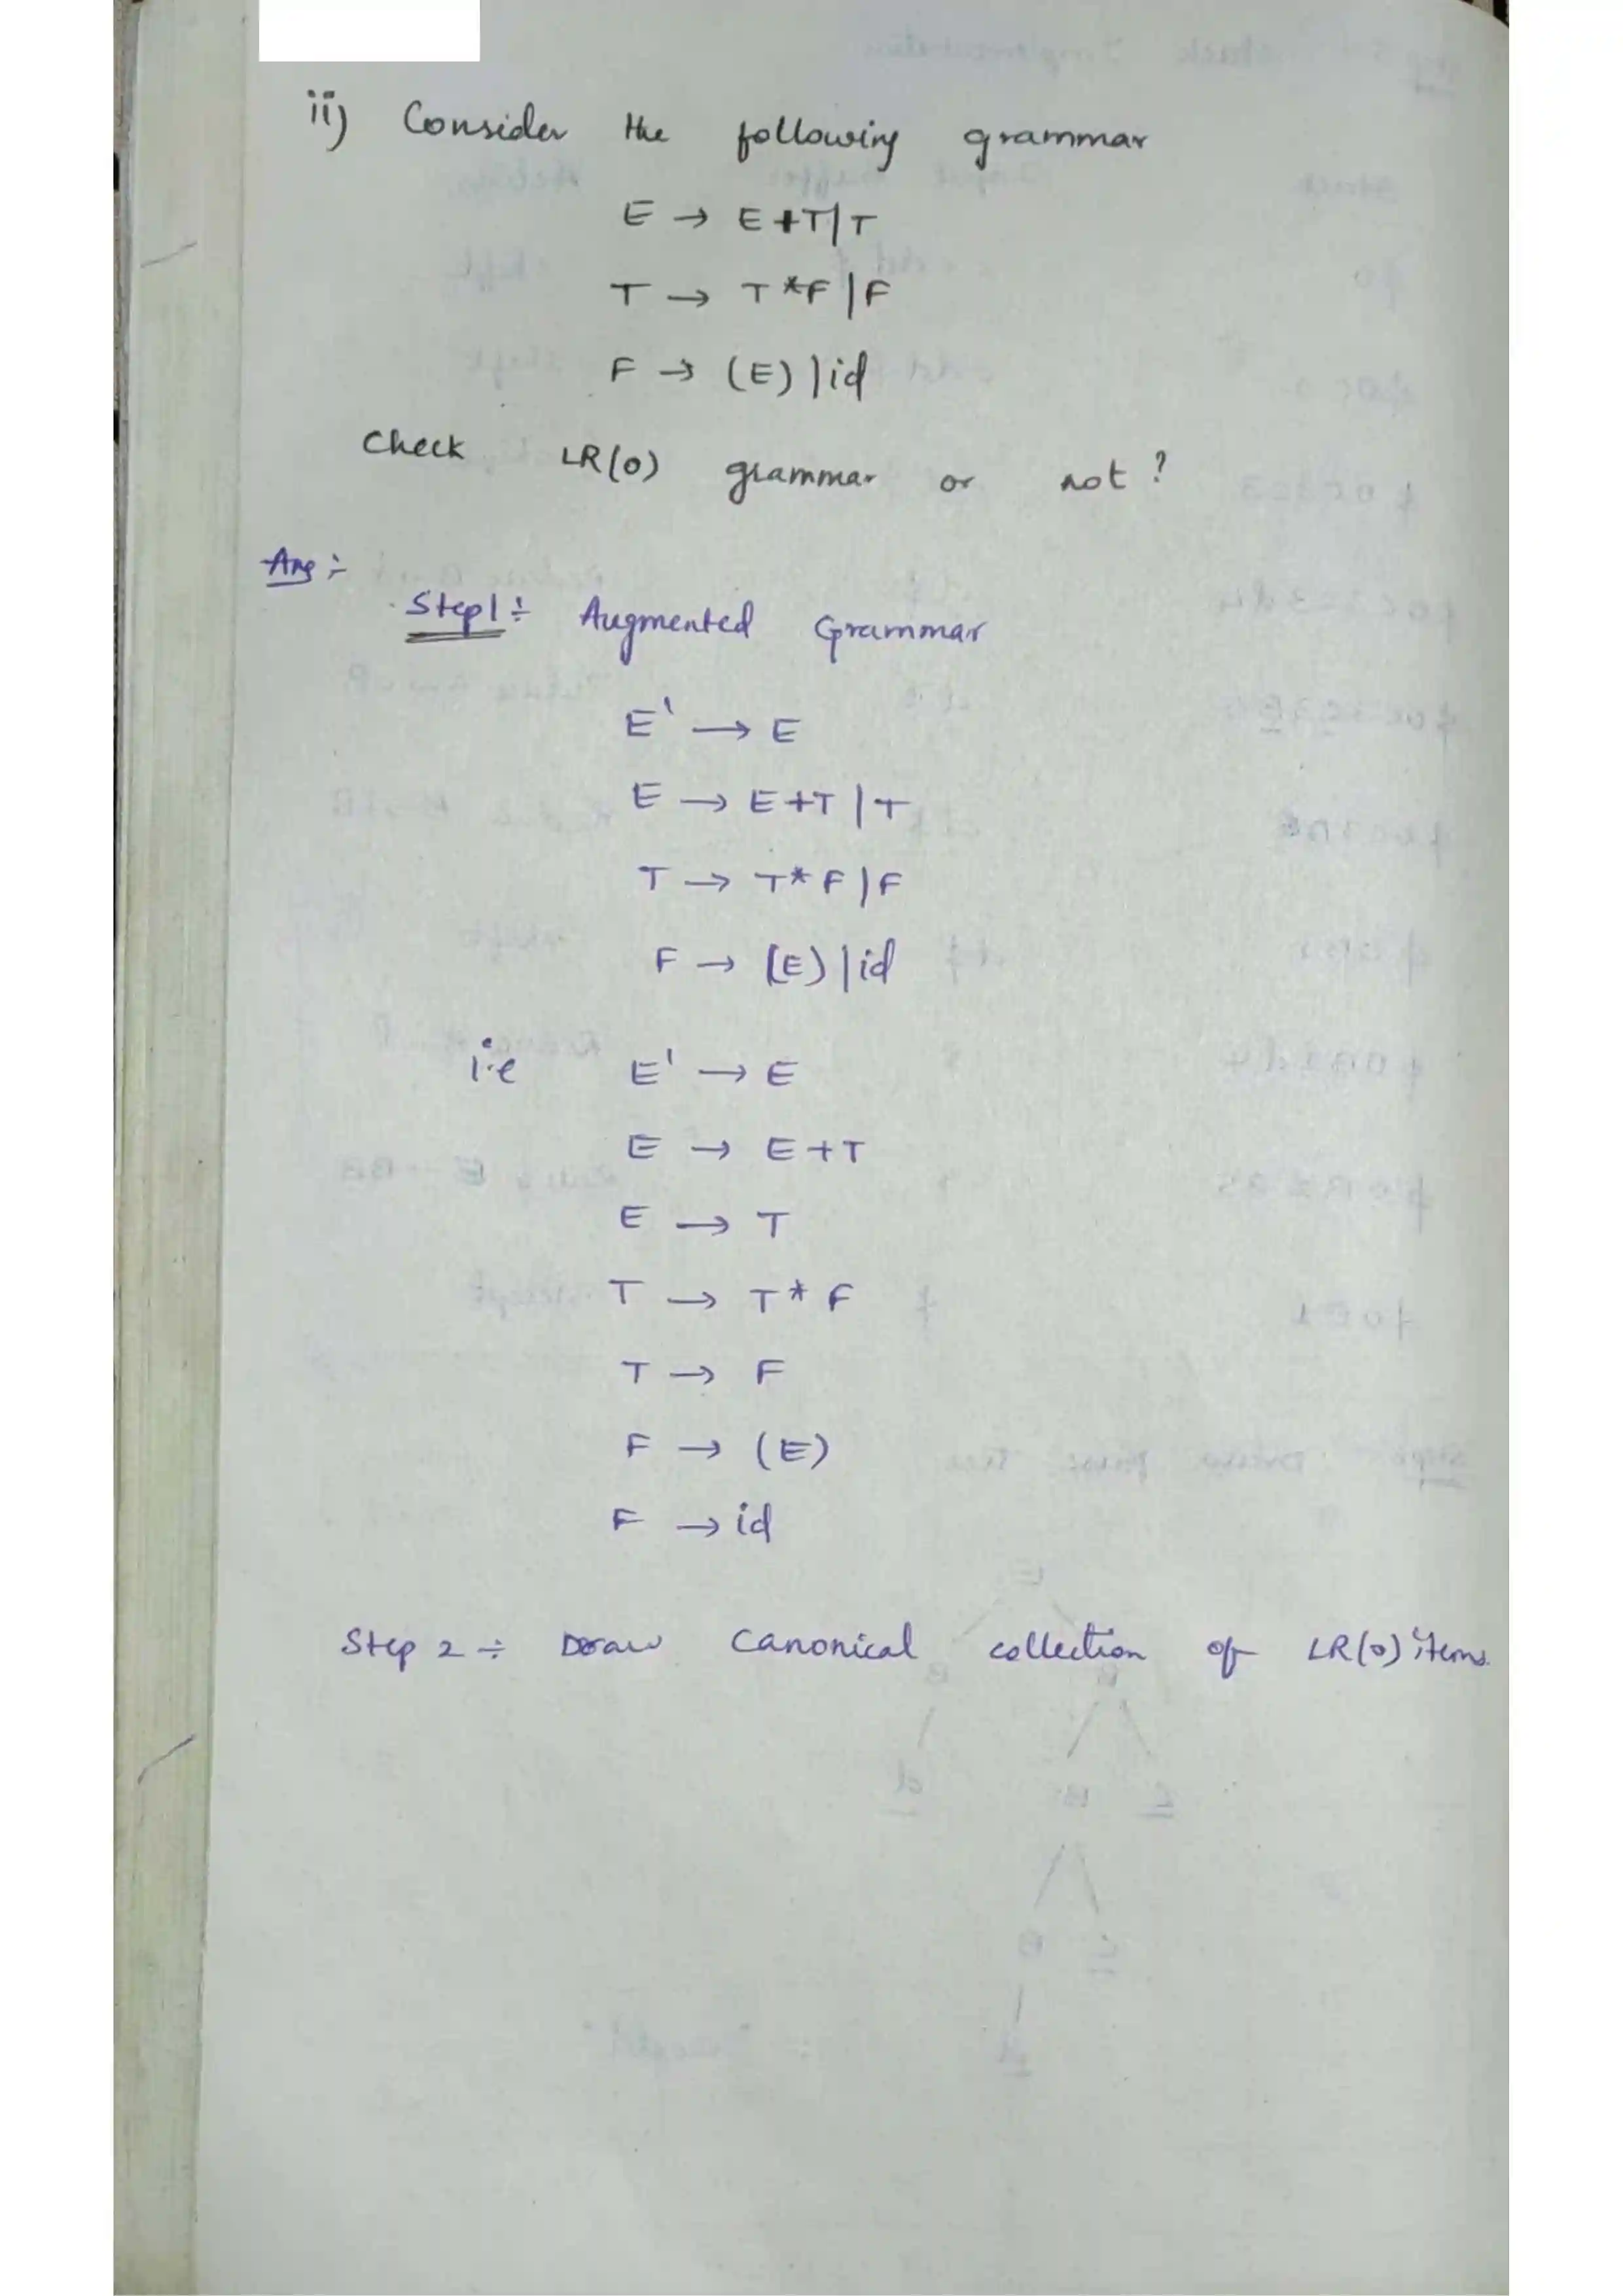 ii) Consider the following grammar
E → E+T|T
T → T*F|F
F → (E)|id
Check LR(0) grammar or not?
Ans :-
Step1 :- Augmented Grammar
E' → E
E → E+T|T
T → T*F|F
F → (E)|id
i.e E' → E
E → E+T
E → T
T → T*F
T → F
F → (E)
F → id
Step 2 :- Draw Canonical collection of LR(0) items.